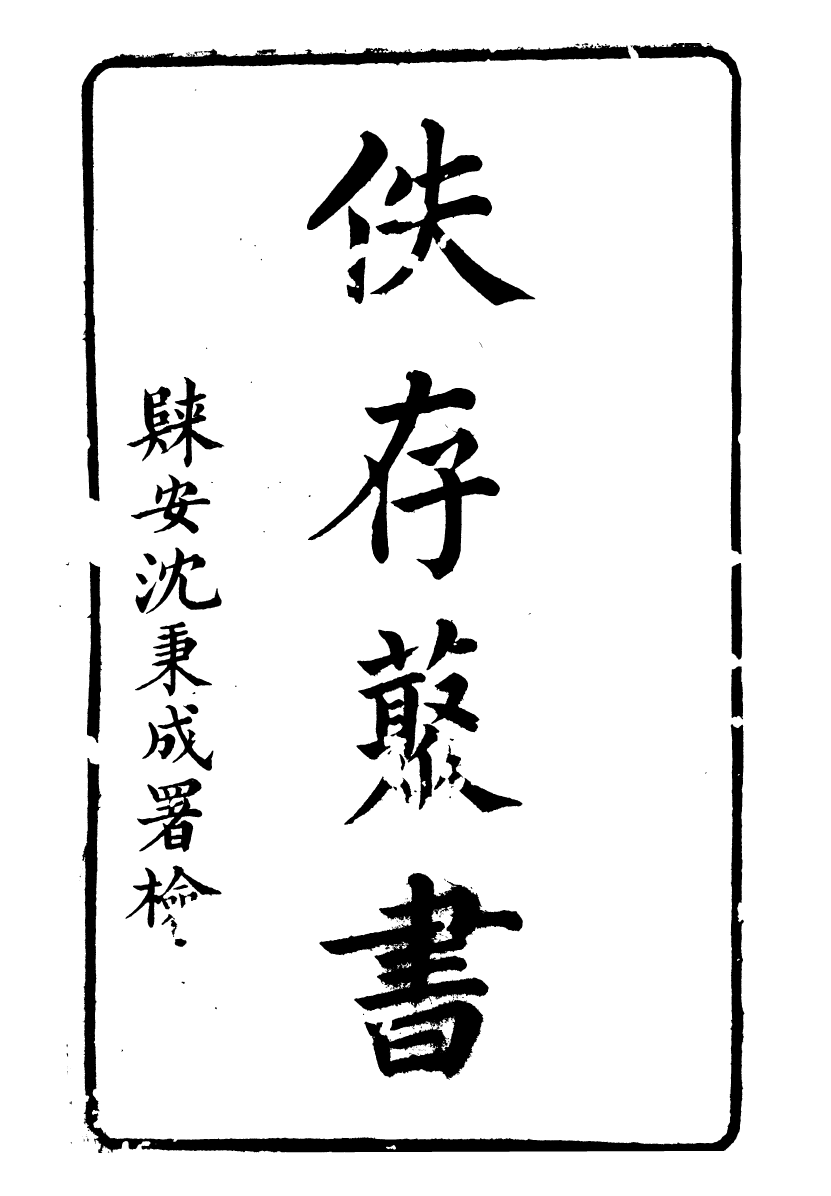 佚存藂書
歸安沈秉成署檢